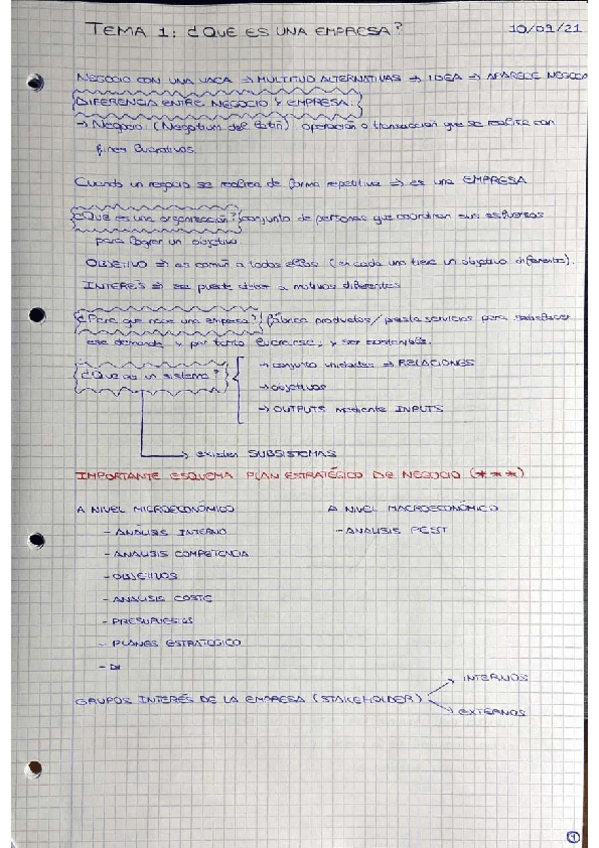 TEMA 1: ¿QUE ES UNA EMPRESA? 10/09/21
NEGOCIO CON UNA VACA → MULTITUD ALTERNATIVAS → IDEA → APARECE NEGOCIO
DIFERENCIA ENTRE NEGOCIO Y EMPRESA.
→ Negocio (Negotium del latín) operación o transacción que se realiza con
fines lucrativos.
Cuando un negocio se realiza de forma repetitiva → es una EMPRESA
¿Qué es una organización? conjunto de personas que coordinan sus esfuerzos
para lograr un objetivo
OBJETIVO → es común a todos ellos (cada uno tiene un objetivo diferente).
INTERÉS → se puede a motivos diferentes
¿Para que nace una empresa? fábrica productos/presta servicios para satisfacer
esa demanda y por tanto lucrarse, y ser sostenible.
¿Que es un sistema? → conjunto unidades → RELACIONES
→ objetivos
→ OUTPUTS mediante INPUTS
→ existen SUBSISTEMAS
IMPORTANTE ESQUEMA PLAN ESTRATÉGICO DE NEGOCIO (***)
A NIVEL MICROECONÓMICO A NIVEL MACROECONÓMICO
- ANÁLISIS INTERNO - ANALISIS PEST
- ANALISIS COMPETENCIA
- OBJETIVOS
- ANALISIS COSTE
- PRESUPUESTOS
- PLANES ESTRATEGICO
-
GRUPOS INTERÉS DE LA EMPRESA (STAKEHOLDER) → INTERNOS
→ EXTERNOS
1